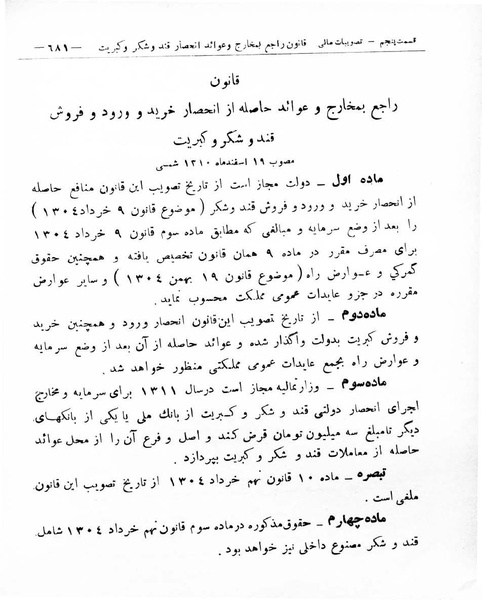 قسمت پنجم – تصویبات مالی قانون راجع بمخارج وعوائد انحصار قند وشکر وکبریت —٦٨١—
قانون
راجع بمخارج و عوائد حاصله از انحصار خرید و ورود و فروش
قند و شکر و کبریت
مصوب ١٩ اسفندماه ١٣١٠ شمسی
ماده اول – دولت مجاز است از تاریخ تصویب این قانون منافع حاصله
از انحصار خرید و ورود و فروش قند وشکر ( موضوع قانون ٩ خرداد ١٣٠٤ )
را بعد از وضع سرمایه و مبالغی که مطابق ماده سوم قانون ٩ خرداد ١٣٠٤
برای مصرف مقرر در ماده ٩ همان قانون تخصیص یافته و همچنین حقوق
گمرکی و عوارض راه ( موضوع قانون ١٩ بهمن ١٣٠٤ ) و سایر عوارض
مقرره در جزو عایدات عمومی مملکت محسوب نماید.
ماده دوم – از تاریخ تصویب این قانون انحصار ورود و همچنین خرید
و فروش کبریت بدولت واگذار شده و عوائد حاصله از آن بعد از وضع سرمایه
و عوارض راه بجمع عایدات عمومی مملکتی منظور خواهد شد.
ماده سوم – وزارتمالیه مجاز است درسال ١٣١١ برای سرمایه و مخارج
اجرای انحصار دولتی قند و شکر و کبریت از بانک ملی یا یکی از بانکهای
دیگر تامبلغ سه میلیون تومان قرض کند و اصل و فرع آن را از محل عوائد
حاصله از معاملات قند و شکر و کبریت بپردازد.
تبصره – ماده ١٠ قانون نهم خرداد ١٣٠٤ از تاریخ تصویب این قانون
ملغی است.
ماده چهارم – حقوق مذکوره درماده سوم قانون نهم خرداد ١٣٠٤ شامل
قند و شکر مصنوع داخلی نیز خواهد بود.